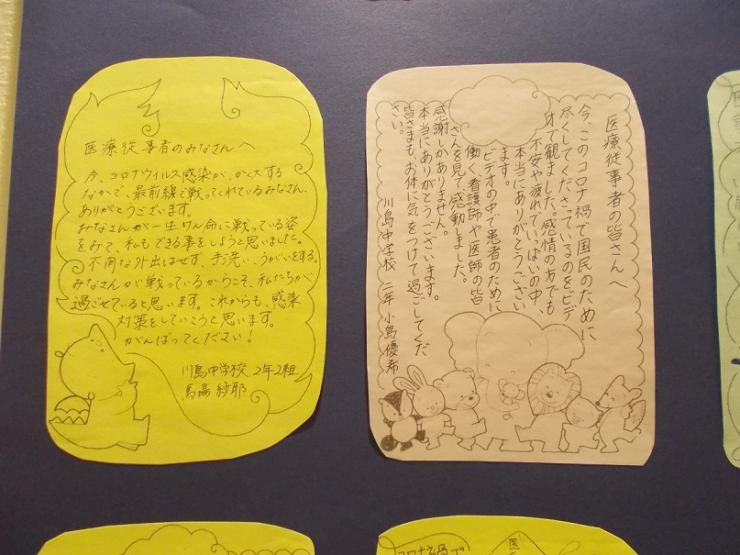 医療従事者のみなさんへ
今、コロナウイルス感染が、かく大する
なかで、最前線で戦ってくれているみなさん、
ありがとうございます。
みなさんが一生けん命に戦っている姿
をみて、私もできる事をしようと思いました。
不用な外出はせず、手洗い、うがいをする。
みなさんが戦っているからこそ、私たちが
過ごせていると思います。これからも、感染
対策をしていこうと思います。
がんばってください!
川島中学校 2年2組
馬場 綾耶
医療従事者の皆さんへ
今、このコロナ禍で国民のために
尽くしてくださっているのをビデ
オで観ました。感情のあでも
不安や疲れでいっぱいの中、
本当にありがとうござい
ます。
ビデオの中で患者のために
働く看護師や医師の皆
さんを見て感動しました。
感謝しかありません。
本当にありがとうございます。
皆さまも、お体に気をつけて過ごしてくだ
さい。
川島中学校 二年 小島優希
コロナ禍で
医